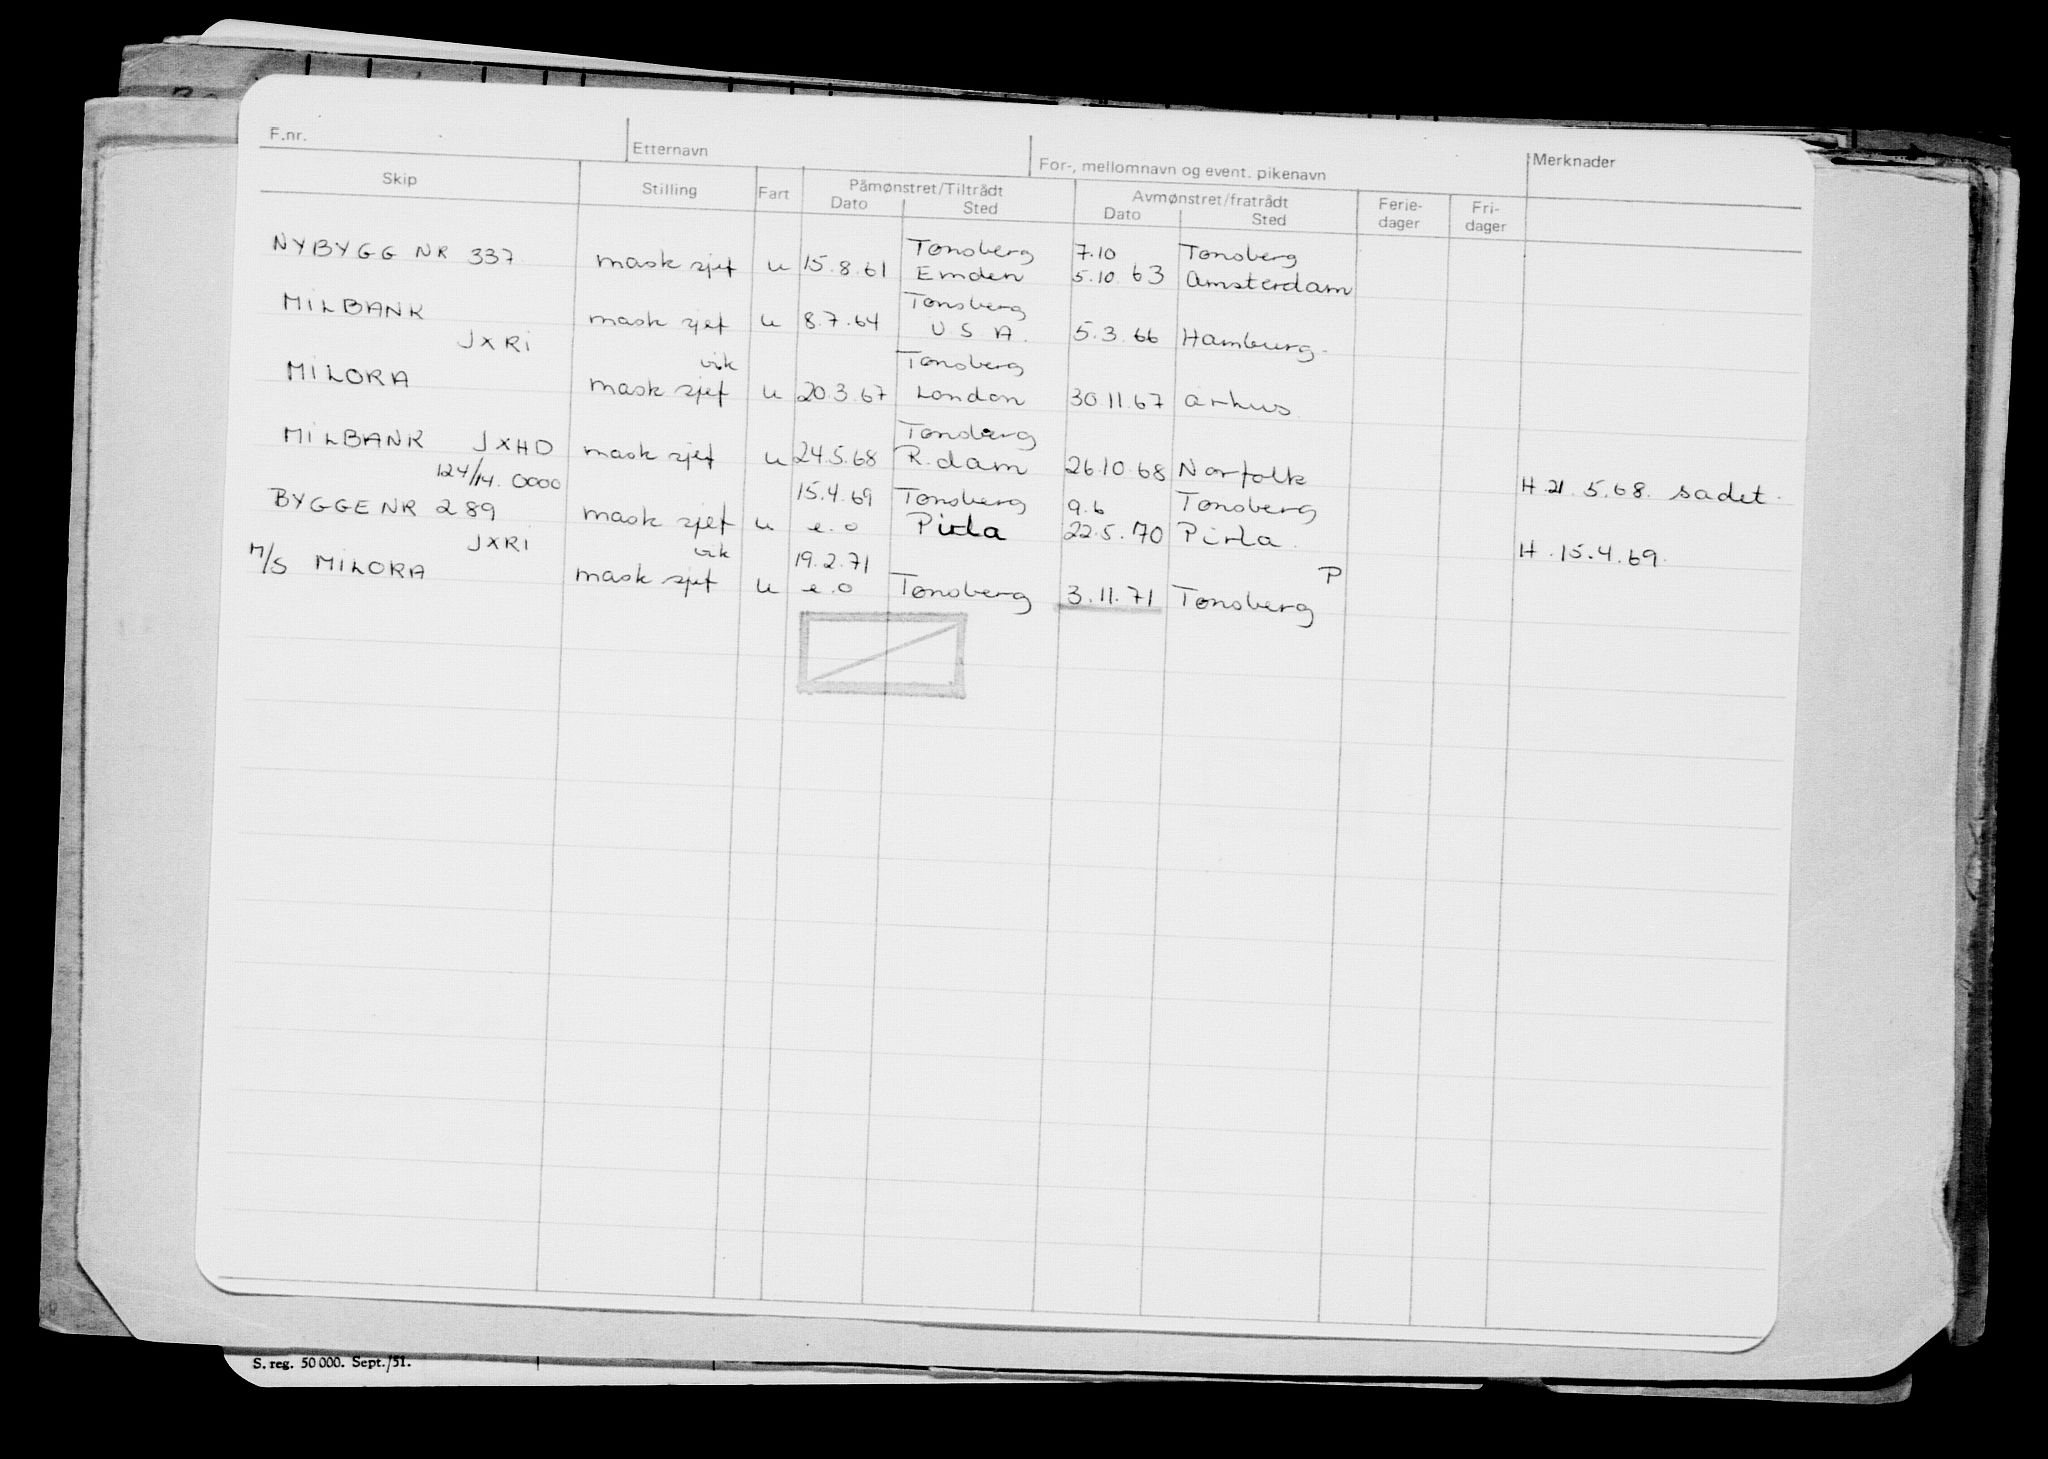 F.nr. Etternavn For-, mellomnavn og event. pikenavn Merknader
Skip Stilling Fart Påmønstret/Tiltrådt Avmønstret/fratrådt Ferie- Fri-
Dato Sted Dato Sted dager dager
Tønsberg 7.10 Tønsberg
NYBYGG NR 337 mask sjef u 15.8.61 Emden 5.10.63 Amsterdam
Tønsberg
MILBANK mask sjef u 8.7.64 U.S.A. 5.3.66 Hamburg
JXRI vik Tønsberg
MILORA mask sjef u 20.3.67 London 30.11.67 Århus
Tønsberg
MILBANK JXHD mask sjef u 24.5.68 R.dam 26.10.68 Norfolk H 21.5.68. sadet.
124/14.0000 15.4.69 Tønsberg 9.6 Tønsberg
BYGGENR 289 mask sjef u e.o Pirla 22.5.70 Pirla. H.15.4.69.
JXRI vik 19.2.71 P
M/S MILORA mask sjef u e.o Tønsberg 3.11.71 Tønsberg
S. reg. 50 000. Sept./51.